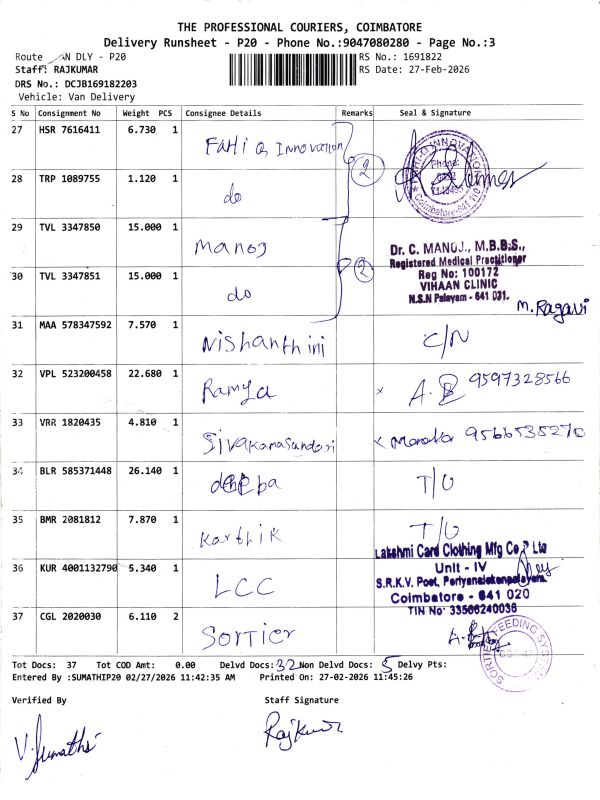 THE PROFESSIONAL COURIERS, COIMBATORE
Delivery Runsheet - P20 - Phone No.:9047080280 - Page No.:3
Route AN DLY - P20
RS No.: 1691822
Staff: RAJKUMAR
RS Date: 27-Feb-2026
DRS No.: DCJB169182203
Vehicle: Van Delivery
S No Consignment No Weight PCS Consignee Details Remarks Seal & Signature
27 HSR 7616411 6.730 1 Innovation
2
28 TRP 1089755 1.120 1 do
29 TVL 3347850 15.000 1 Manoj
Dr. C. MANOJ., M.B.B.S.,
Registered Medical Practitioner
Reg No: 100172
VIHAAN CLINIC
N.S.N Palayam - 641 031.
30 TVL 3347851 15.000 1 do 2
M. Ragavi
31 MAA 578347592 7.570 1 Nishanthini C/N
32 VPL 523200458 22.680 1 Ramya 9597328566
33 VRR 1820435 4.810 1 Sivakamasundari 9566535270
34 BLR 585371448 26.140 1 deepa T/O
35 BMR 2081812 7.870 1 Karthik T/O
Lakshmi Card Clothing Mfg Co P Ltd
Unit - IV
S.R.K.V. Post, Periyanaickenpalayam.
Coimbatore - 641 020
TIN No: 33566240036
36 KUR 4001132790 5.340 1 LCC
37 CGL 2020030 6.110 2 Sortier
Tot Docs: 37 Tot COD Amt: 0.00 Delvd Docs: 32 Non Delvd Docs: 5 Delvy Pts:
Entered By :SUMATHIP20 02/27/2026 11:42:35 AM Printed On: 27-02-2026 11:45:26
Verified By Staff Signature
V. Sumathi Rajkumar